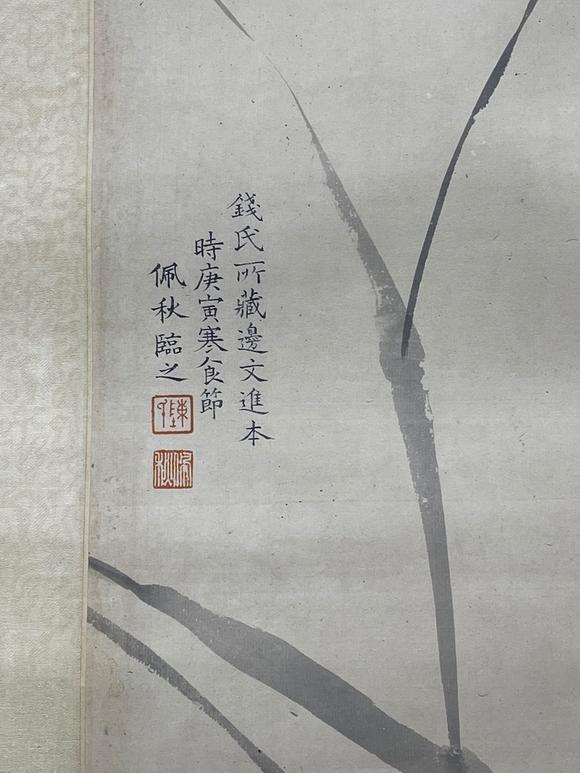 錢氏所藏邊文進本
時庚寅寒食節
佩秋臨之